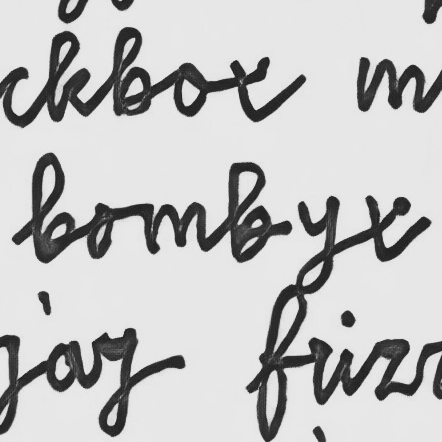 ckbox m
bombyx
jay friz